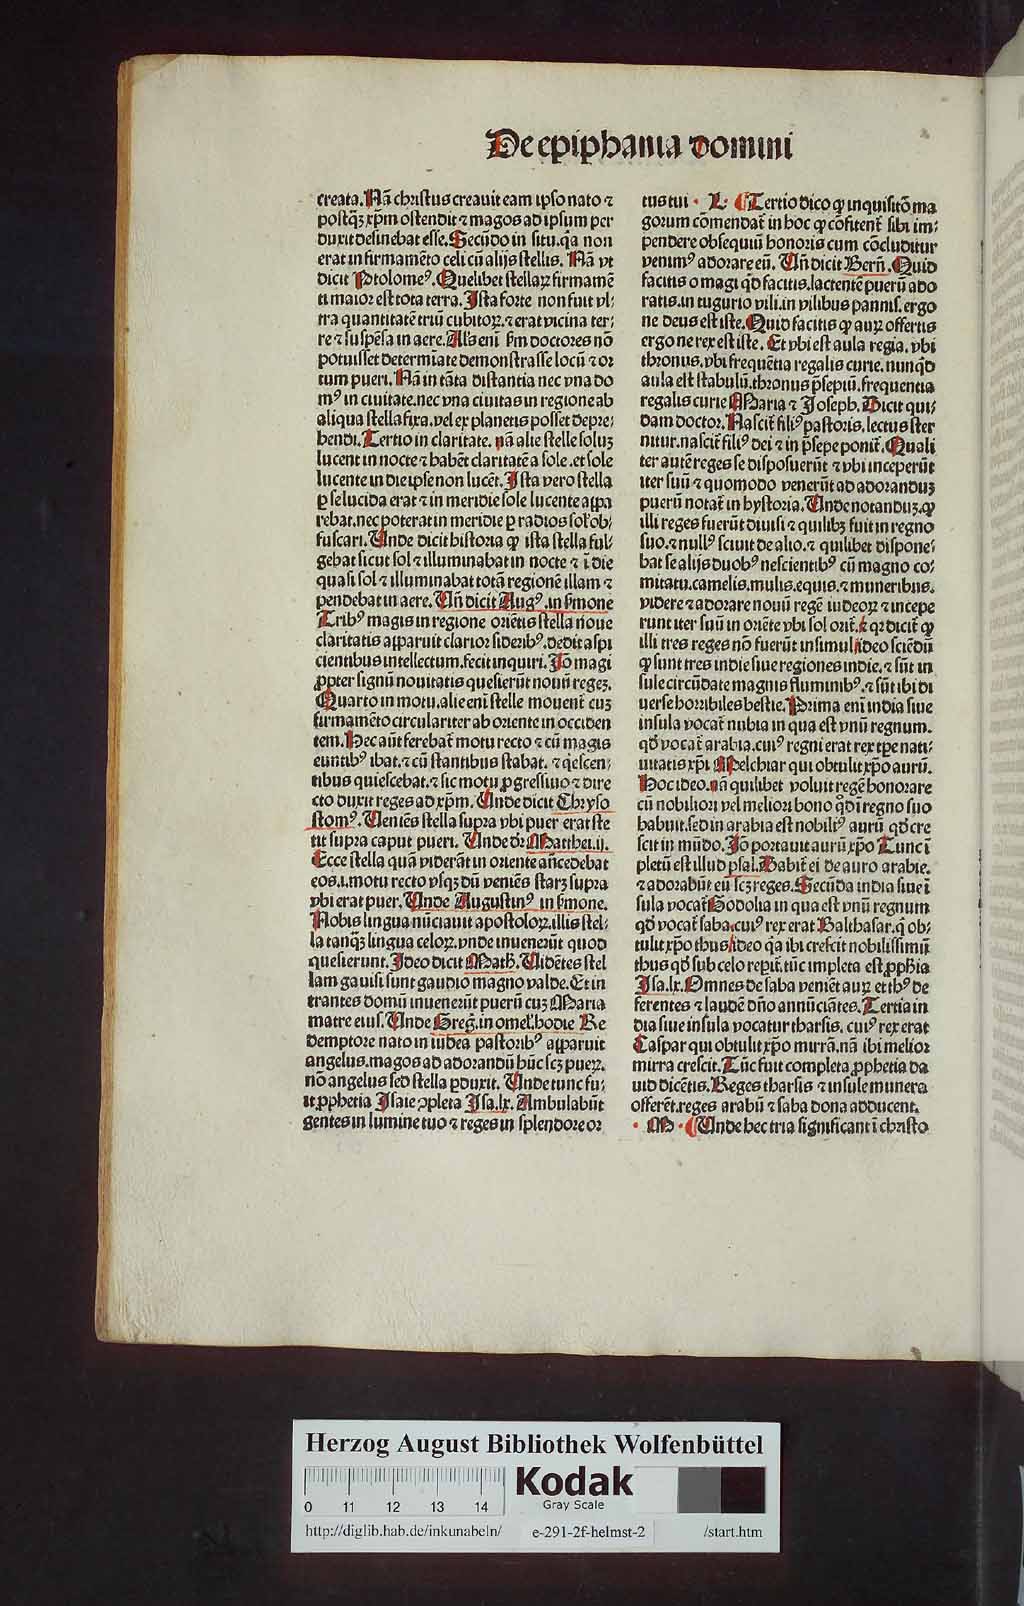 De epiphania domini
creata. Nā christus creauit eam ipso nato ⁊
postqȝ xp̄m ostendit ⁊ magos ad ipsum per
duxit desinebat esse. Secūdo in situ. q̄a non
erat in firmamēto celi cū alijs stellis. Nā vt
dicit Ptolomeꝰ. Quelibet stellaꝝ firmamē
ti maior est tota terra. Ista forte non fuit vl⸗
tra quantitatē triū cubitoꝝ. ⁊ erat vicina ter⸗
re ⁊ suspēsa in aere. Als enī ẜm doctores nō
potuisset determīate demonstrasse locū ⁊ or
tum pueri. Nā in tāta distantia nec vna do
mꝰ in ciuitate. nec vna ciuitas in regione ab
aliqua stella fixa. vel ex planetis posset depre⸗
hendi. Tertio in claritate. nā alie stelle soluȝ
lucent in nocte ⁊ habēt claritatē a sole. et sole
lucente in die ipse non lucēt. Ista vero stella
ꝑ se lucida erat ⁊ in meridie sole lucente appa
rebat. nec poterat in meridie ꝑ radios sol' ob⸗
fuscari. Unde dicit historia ꝙ ista stella ful⸗
gebat sicut sol ⁊ illuminabat in nocte ⁊ ī die
quasi sol ⁊ illuminabat totā regionē illam ⁊
pendebat in aere. Un̄ dicit Augꝰ. in ẜmone
Tribꝰ magis in regione oriētis stella noue
claritatis apparuit clarior sideribꝰ. dedit aspi
cientibus intellectum. fecit inquiri. Jō magi
ꝓpter signū nouitatis quesierūt nouū regeȝ.
Quarto in motu. alie enī stelle mouent̄ cuȝ
firmamēto circulariter ab oriente in occiden
tem. Hec aūt ferebat̄ motu recto ⁊ cū magis
euntibꝰ ibat. ⁊ cū stantibus stabat. ⁊ q̄escen⸗
tibus quiescebat. ⁊ sic motu ꝓgressiuo ⁊ dire
cto duxit reges ad xp̄m. Unde dicit Chryso
stomꝰ. Ueniēs stella supra vbi puer erat ste
tit supra caput pueri. Unde dr̄ Matthei.ij.
Ecce stella quā viderāt in oriente an̄cedebat
eos. i. motu recto vsqȝ dū veniēs staret supra
vbi erat puer. Unde Augustinꝰ in ẜmone.
Nobis lingua nūciauit apostoloꝝ. illis stel⸗
la tanqȝ lingua celoꝝ. vnde inuenerūt quod
quesierunt. Ideo dicit Math. Uidētes stel
lam gauisi sunt gaudio magno valde. Et in
trantes domū inuenerūt puerū cuȝ Maria
matre eius. Unde Greg̅. in omel'. hodie Re
demptore nato in iudea pastoribꝰ apparuit
angelus. magos ad adorandū hūc scȝ pueꝝ.
nō angelus sed stella ꝑduxit. Unde tunc fu⸗
it ꝓphetia Isaie ꝯpleta Isa.lx. Ambulabūt
gentes in lumine tuo ⁊ reges in splendore or
tus tui · L· Tertio dico ꝙ inquisitō ma
gorum cōmendat̄ in hoc ꝙ cōfitent̄ sibi im⸗
pendere obsequiū honoris cum cōcluditur
venimꝰ adorare eū. Un̄ dicit Bern̄. Quid
facitis o magi qd̄ facitis. lactentē puerū ado
ratis. in tugurio vili. in vilibus pannis. ergo
ne deus est iste. Quid facitis ꝙ auꝝ offertis
ergo ne rex est iste. Et vbi est aula regia. vbi
thronus. vbi frequētia regalis curie. nunqd̄
aula est stabulū. thronus p̄sepiū. frequentia
regalis curie Maria ⁊ Joseph. Dicit qui⸗
dam doctor. Nascit̄ filiꝰ pastoris. lectus ster
nitur. nascit̄ filiꝰ dei ⁊ in p̄sepe ponit̄. Quali
ter autē reges se disposuerūt ⁊ vbi inceperūt
iter suū ⁊ quomodo venerūt ad adoranduȝ
puerū notat̄ in hystoria. Unde notanduȝ. ꝙ
illi reges fuerūt diuisi ⁊ quilibȝ fuit in regno
suo. ⁊ nullꝰ sciuit de alio. ⁊ quilibet dispone⸗
bat se alijs duobꝰ nescientibꝰ cū magno co⸗
mitatu. camelis. mulis. equis. ⁊ muneribus.
videre ⁊ adorare nouū regē iudeoꝝ ⁊ incepe
runt iter suū in oriēte vbi sol orit̄. ⁊ qr dicit̄ ꝙ
illi tres reges nō fuerūt insimul ideo sciēdū
ꝙ sunt tres indie siue regiones indie. ⁊ sūt in
sule circūdate magnis fluminibꝰ. ⁊ sūt ibi di
uerse horribiles bestie. Prima enī india siue
insula vocat̄ nubia in qua est vnū regnum.
qd̄ vocat̄ arabia. cuiꝰ regni erat rex tp̄e nati⸗
uitatis xp̄i Melchiar qui obtulit xp̄o aurū.
Hoc ideo. nā quilibet voluit regē honorare
cū nobiliori vel meliori bono qd̄ ī regno suo
habuit. sed in arabia est nobilꝰ aurū qd̄ cre
scit in mūdo. Jō portauit aurū xp̄o Tunc ī
pletū est illud psal. Dabit̄ ei de auro arabie.
⁊ adorabūt eū scȝ reges. Secūda india siue ī
sula vocat̄ Godolia in qua est vnū regnum
qd̄ vocat̄ saba. cuiꝰ rex erat Balthasar. q̄ ob⸗
tulit xp̄o thus ideo q̄a ibi crescit nobilissimū
thus qd̄ sub celo reꝑit̄. tūc impleta est ꝓph̄ia
Isa.lx. Omnes de saba veniēt auꝝ et thꝰ de
ferentes ⁊ laudē dn̄o annūciātes. Tertia in
dia siue insula vocatur tharsis. cuiꝰ rex erat
Caspar qui obtulit xp̄o mirrā. nā ibi melior
mirra crescit. Tūc fuit completa ꝓphetia da
uid dicētis. Reges tharsis ⁊ insule munera
offerēt. reges arabū ⁊ saba dona adducent.
· M · Unde hec tria significant ī christo
Herzog August Bibliothek Wolfenbüttel
0 11 12 13 14
Kodak
Gray Scale
http://diglib.hab.de/inkunabeln/ e-291-2f-helmst-2 /start.htm